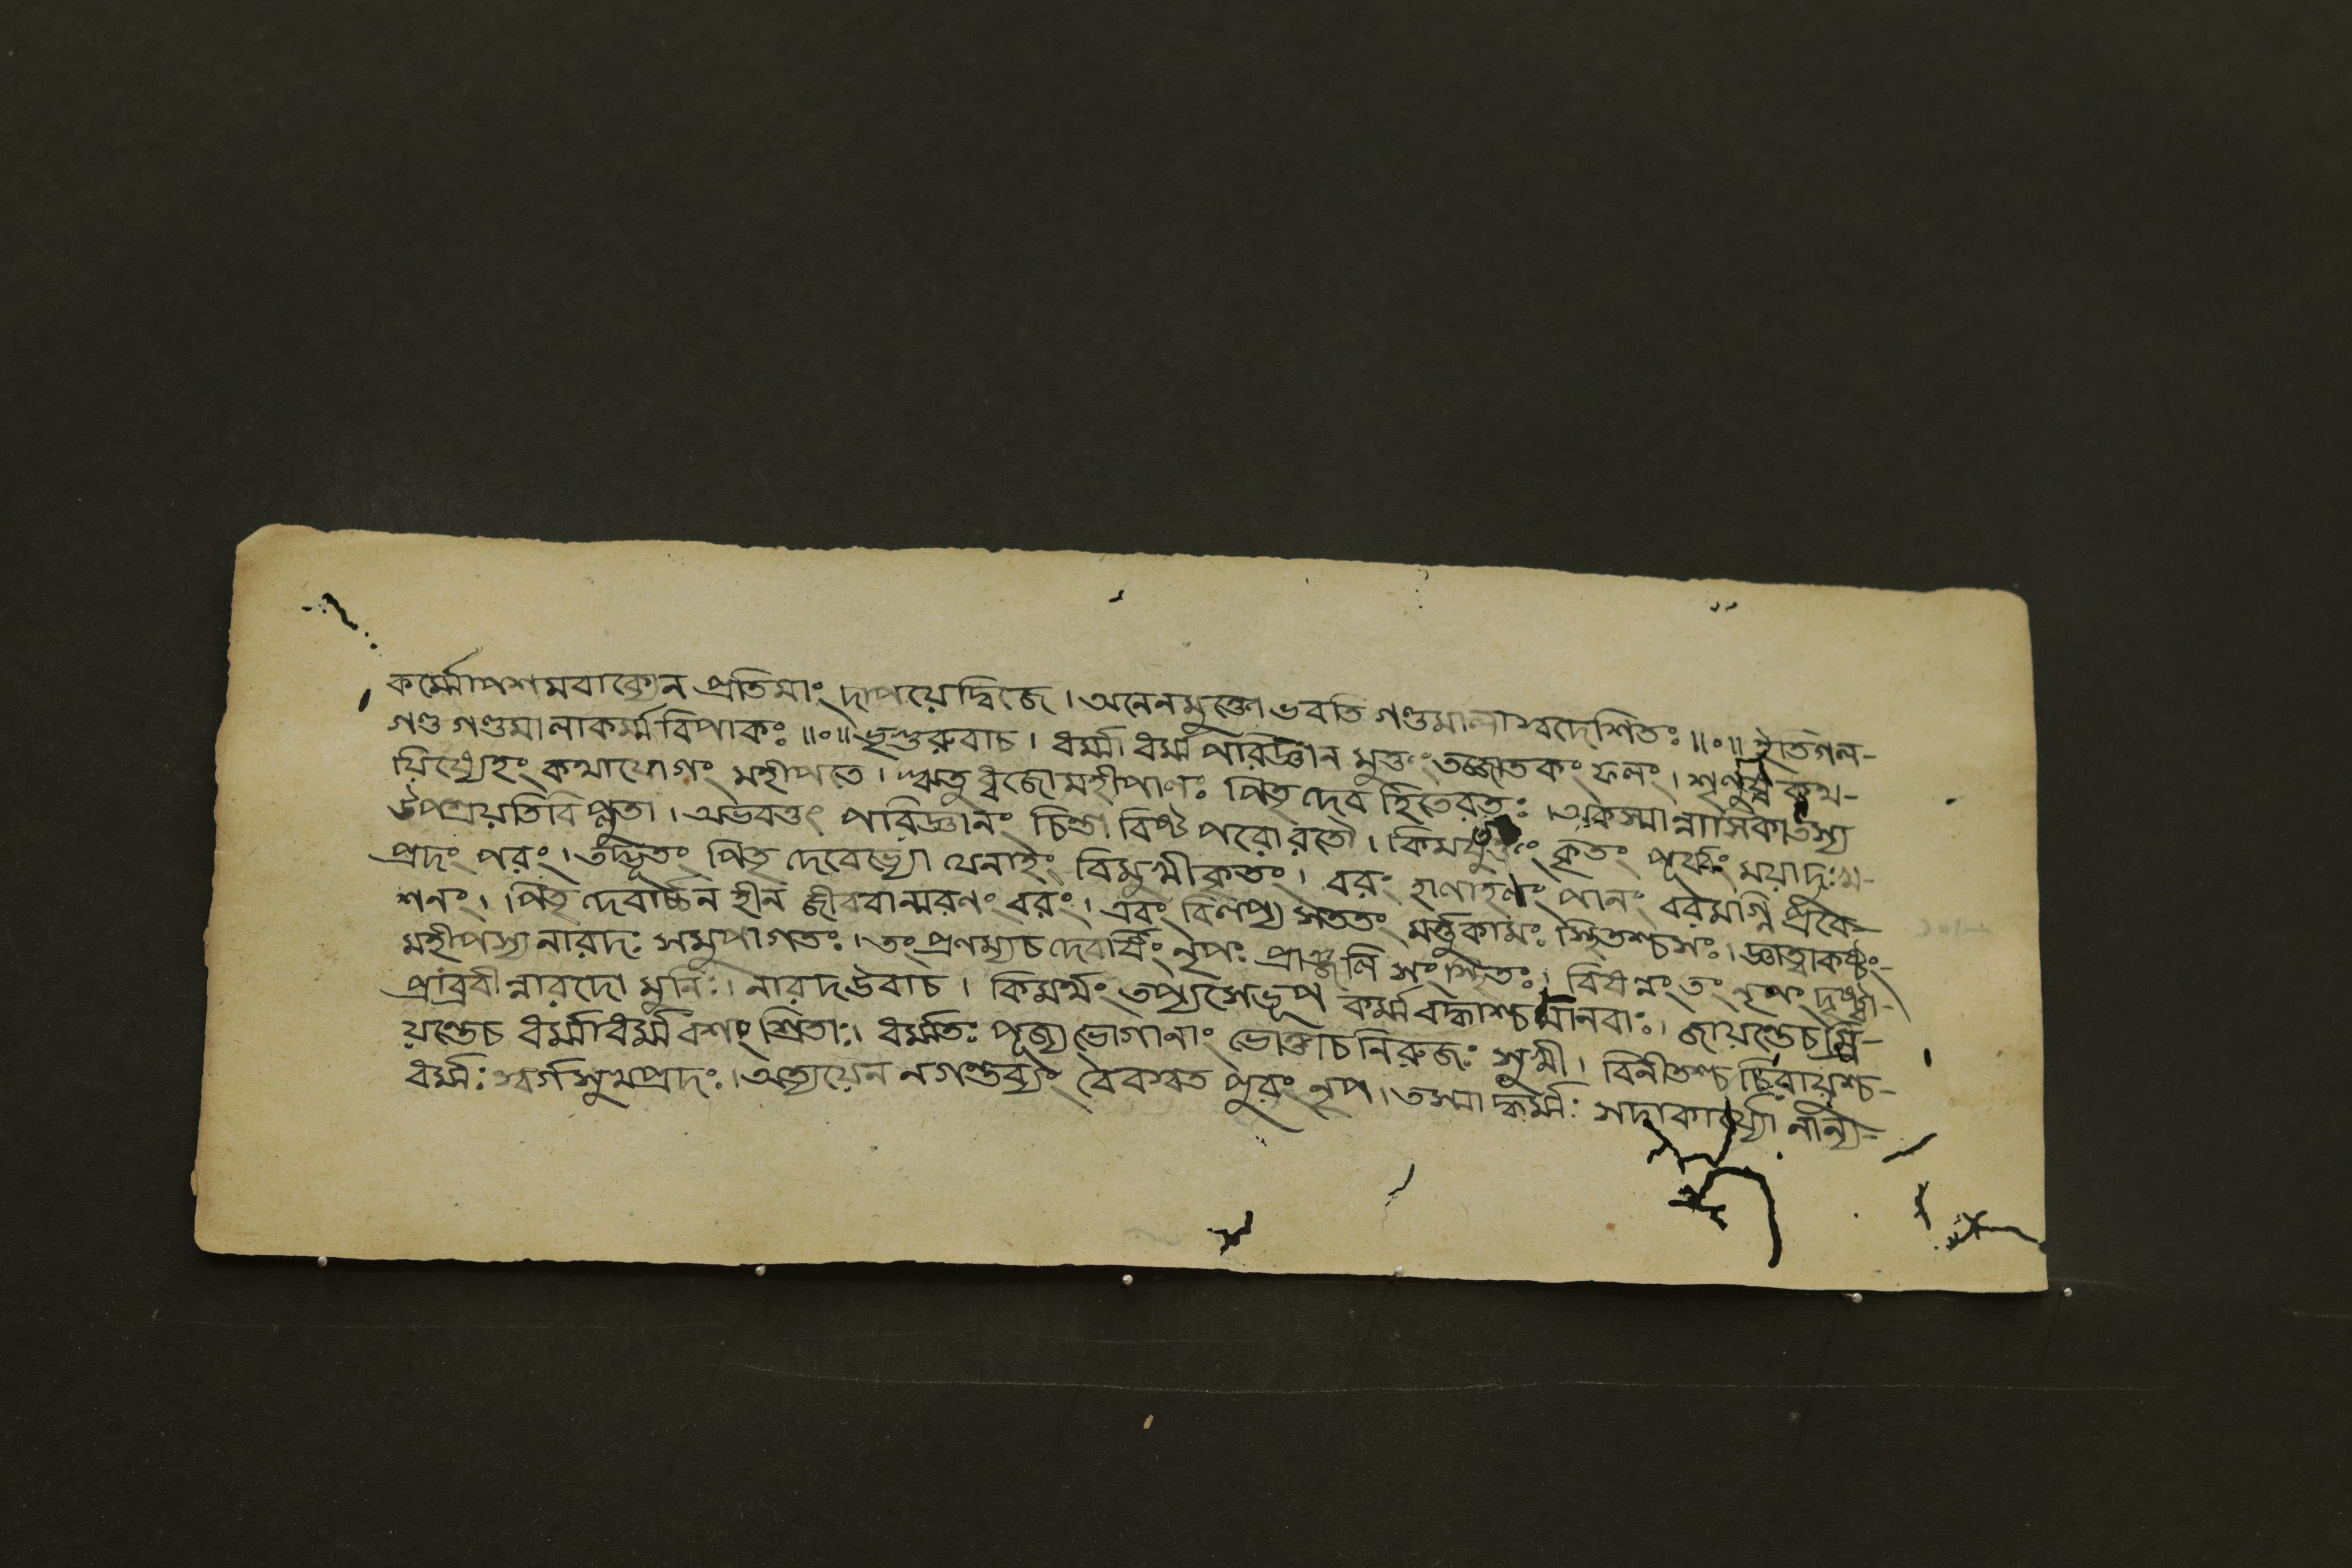 কর্ম্মোপশমবাক্যেন প্রতিমাং দাপয়েদ্দ্বিজে। অনেনমুক্তো ভবতি গণ্ডমালাস্বদেশিতঃ॥০॥ ইতিগল-
গণ্ড গণ্ডমালাকর্ম্মবিপাকঃ॥০॥ ভৃগুরুবাচ। ধর্ম্মাধর্ম্ম পরিজ্ঞান মুক্তং তজ্জাতকং ফলং। শৃণুষ্ব কথ-
য়িষ্যেহং কথাযোগং মহীপতে। ঋতুধ্বজোমহীপালঃ পিতৃদেব হিতেরতঃ। অকস্মান্নাসিকাতস্য
উপশ্রয়তিবিপ্লুতা। অভবত্তৎ পরিজ্ঞানং চিন্তাবিষ্ট পরোরতৌ। কিম কৃতং পূর্ব্বং ময়াদুঃখ-
প্রদং পরং। তদ্ভূতং পিতৃদেবেভ্যো যেনাহং বিমুখীকৃতং। বরং হালাহলং পানং বরমগ্নি প্রবে-
শনং। পিতৃদেবার্চ্চন হীন জীববান্মরণং বরং। এবং বিলপ্য সততং মর্ত্তুকামঃ স্থিতশ্চসঃ। জ্ঞাত্বাকষ্টং-
মহীপস্য নারদঃ সমুপাগতঃ। তং প্রণম্যচ দেবর্ষিং নৃপঃ প্রাঞ্জলি সংস্থিতঃ। বিষন্নং তং নৃপং দৃষ্ট্বা-
প্রাব্রবীন্নারদো মুনিঃ। নারদউবাচ। কিমর্থং তপ্যসেভূপ কর্ম্মবদ্ধাশ্চ মানবাঃ। জায়ন্তেচ ম্রি-
য়ন্তেচ ধর্ম্মাধর্ম্মবশং শ্রিতাঃ। ধর্ম্মতঃ পূজ্যভোগানাং ভোক্তাচনিরুজঃ সুখী। বিনীতশ্চ চিরায়ুশ্চ-
ধর্ম্মঃ স্বর্গসুখপ্রদঃ। অত্যয়েন নগন্তব্যং বৈবস্বত পুরং নৃপ। তস্মাদ্ধর্ম্মঃ সদাকার্য্যো নান্য-